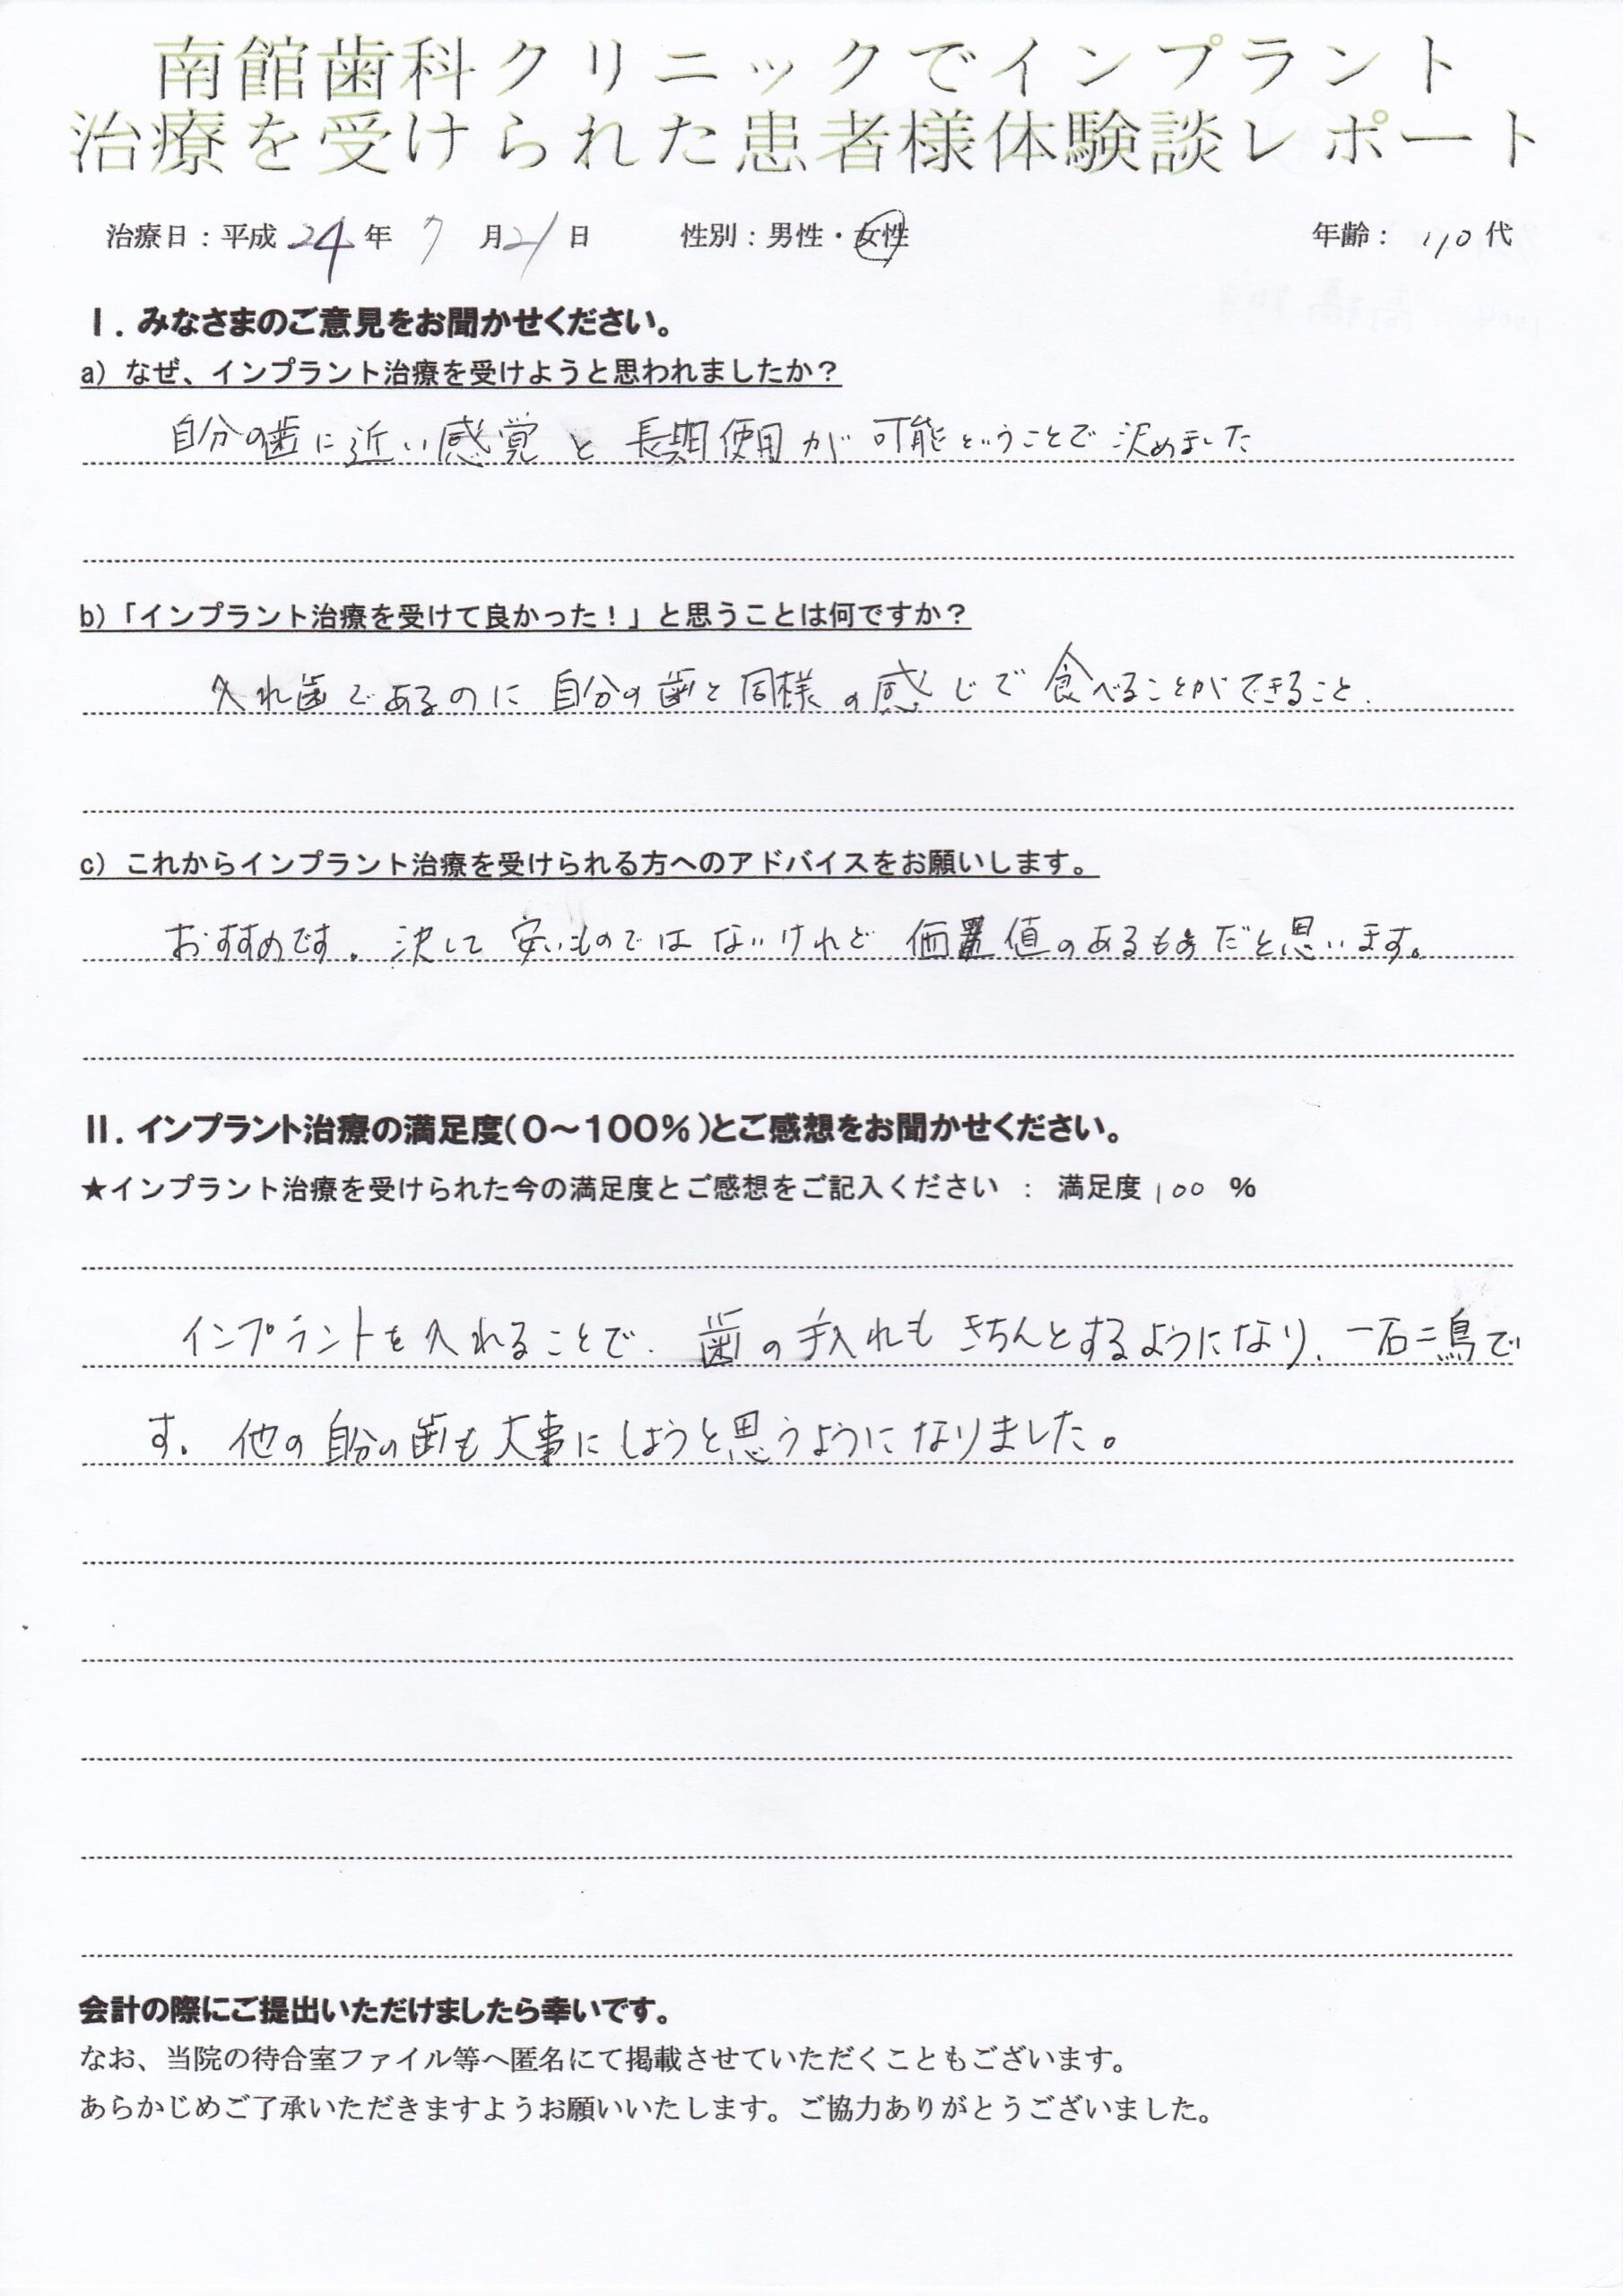 南館歯科クリニックでインプラント
治療を受けられた患者様体験談レポート
治療日：平成 24 年 7 月 21 日 性別：男性・女性 年齢： 代
Ⅰ．みなさまのご意見をお聞かせください。
a）なぜ、インプラント治療を受けようと思われましたか？
自分の歯に近い感覚と長期使用が可能ということで決めました
b）「インプラント治療を受けて良かった！」と思うことは何ですか？
入れ歯であるのに自分の歯と同様の感じで食べることができること.
c）これからインプラント治療を受けられる方へのアドバイスをお願いします。
おすすめです。決して安いものではないけれど価値のあるものだと思います。
Ⅱ．インプラント治療の満足度（０～１００％）とご感想をお聞かせください。
★インプラント治療を受けられた今の満足度とご感想をご記入ください ： 満足度 100 ％
インプラントを入れることで、歯の手入れもきちんとするようになり、一石二鳥で
す。他の自分の歯も大事にしようと思うようになりました。
会計の際にご提出いただけましたら幸いです。
なお、当院の待合室ファイル等へ匿名にて掲載させていただくこともございます。
あらかじめご了承いただきますようお願いいたします。ご協力ありがとうございました。